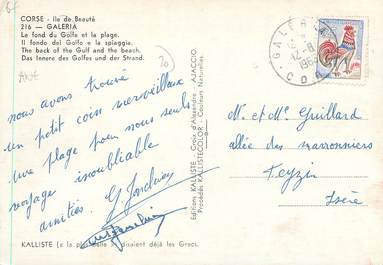 CORSE - Ile de Beauté
216 — GALERIA
Le fond du Golfe et la plage.
Il fondo del Golfo e la spiaggia.
The back of the Gulf and the beach.
Das Innere des Golfes und der Strand.
nous avons trouvé
un petit coin merveilleux
une plage pour nous seuls
voyage inoubliable
amitiés.
KALLISTE (« la plus belle » disaient déjà les Grecs.
Editions KALISTE - Croix d'Alexandre - AJACCIO
Procédés KALLISTECOLOR - Couleurs Naturelles
GALERIA
M. et Mme Guillard
allée des marronniers
Feyzin
Isère